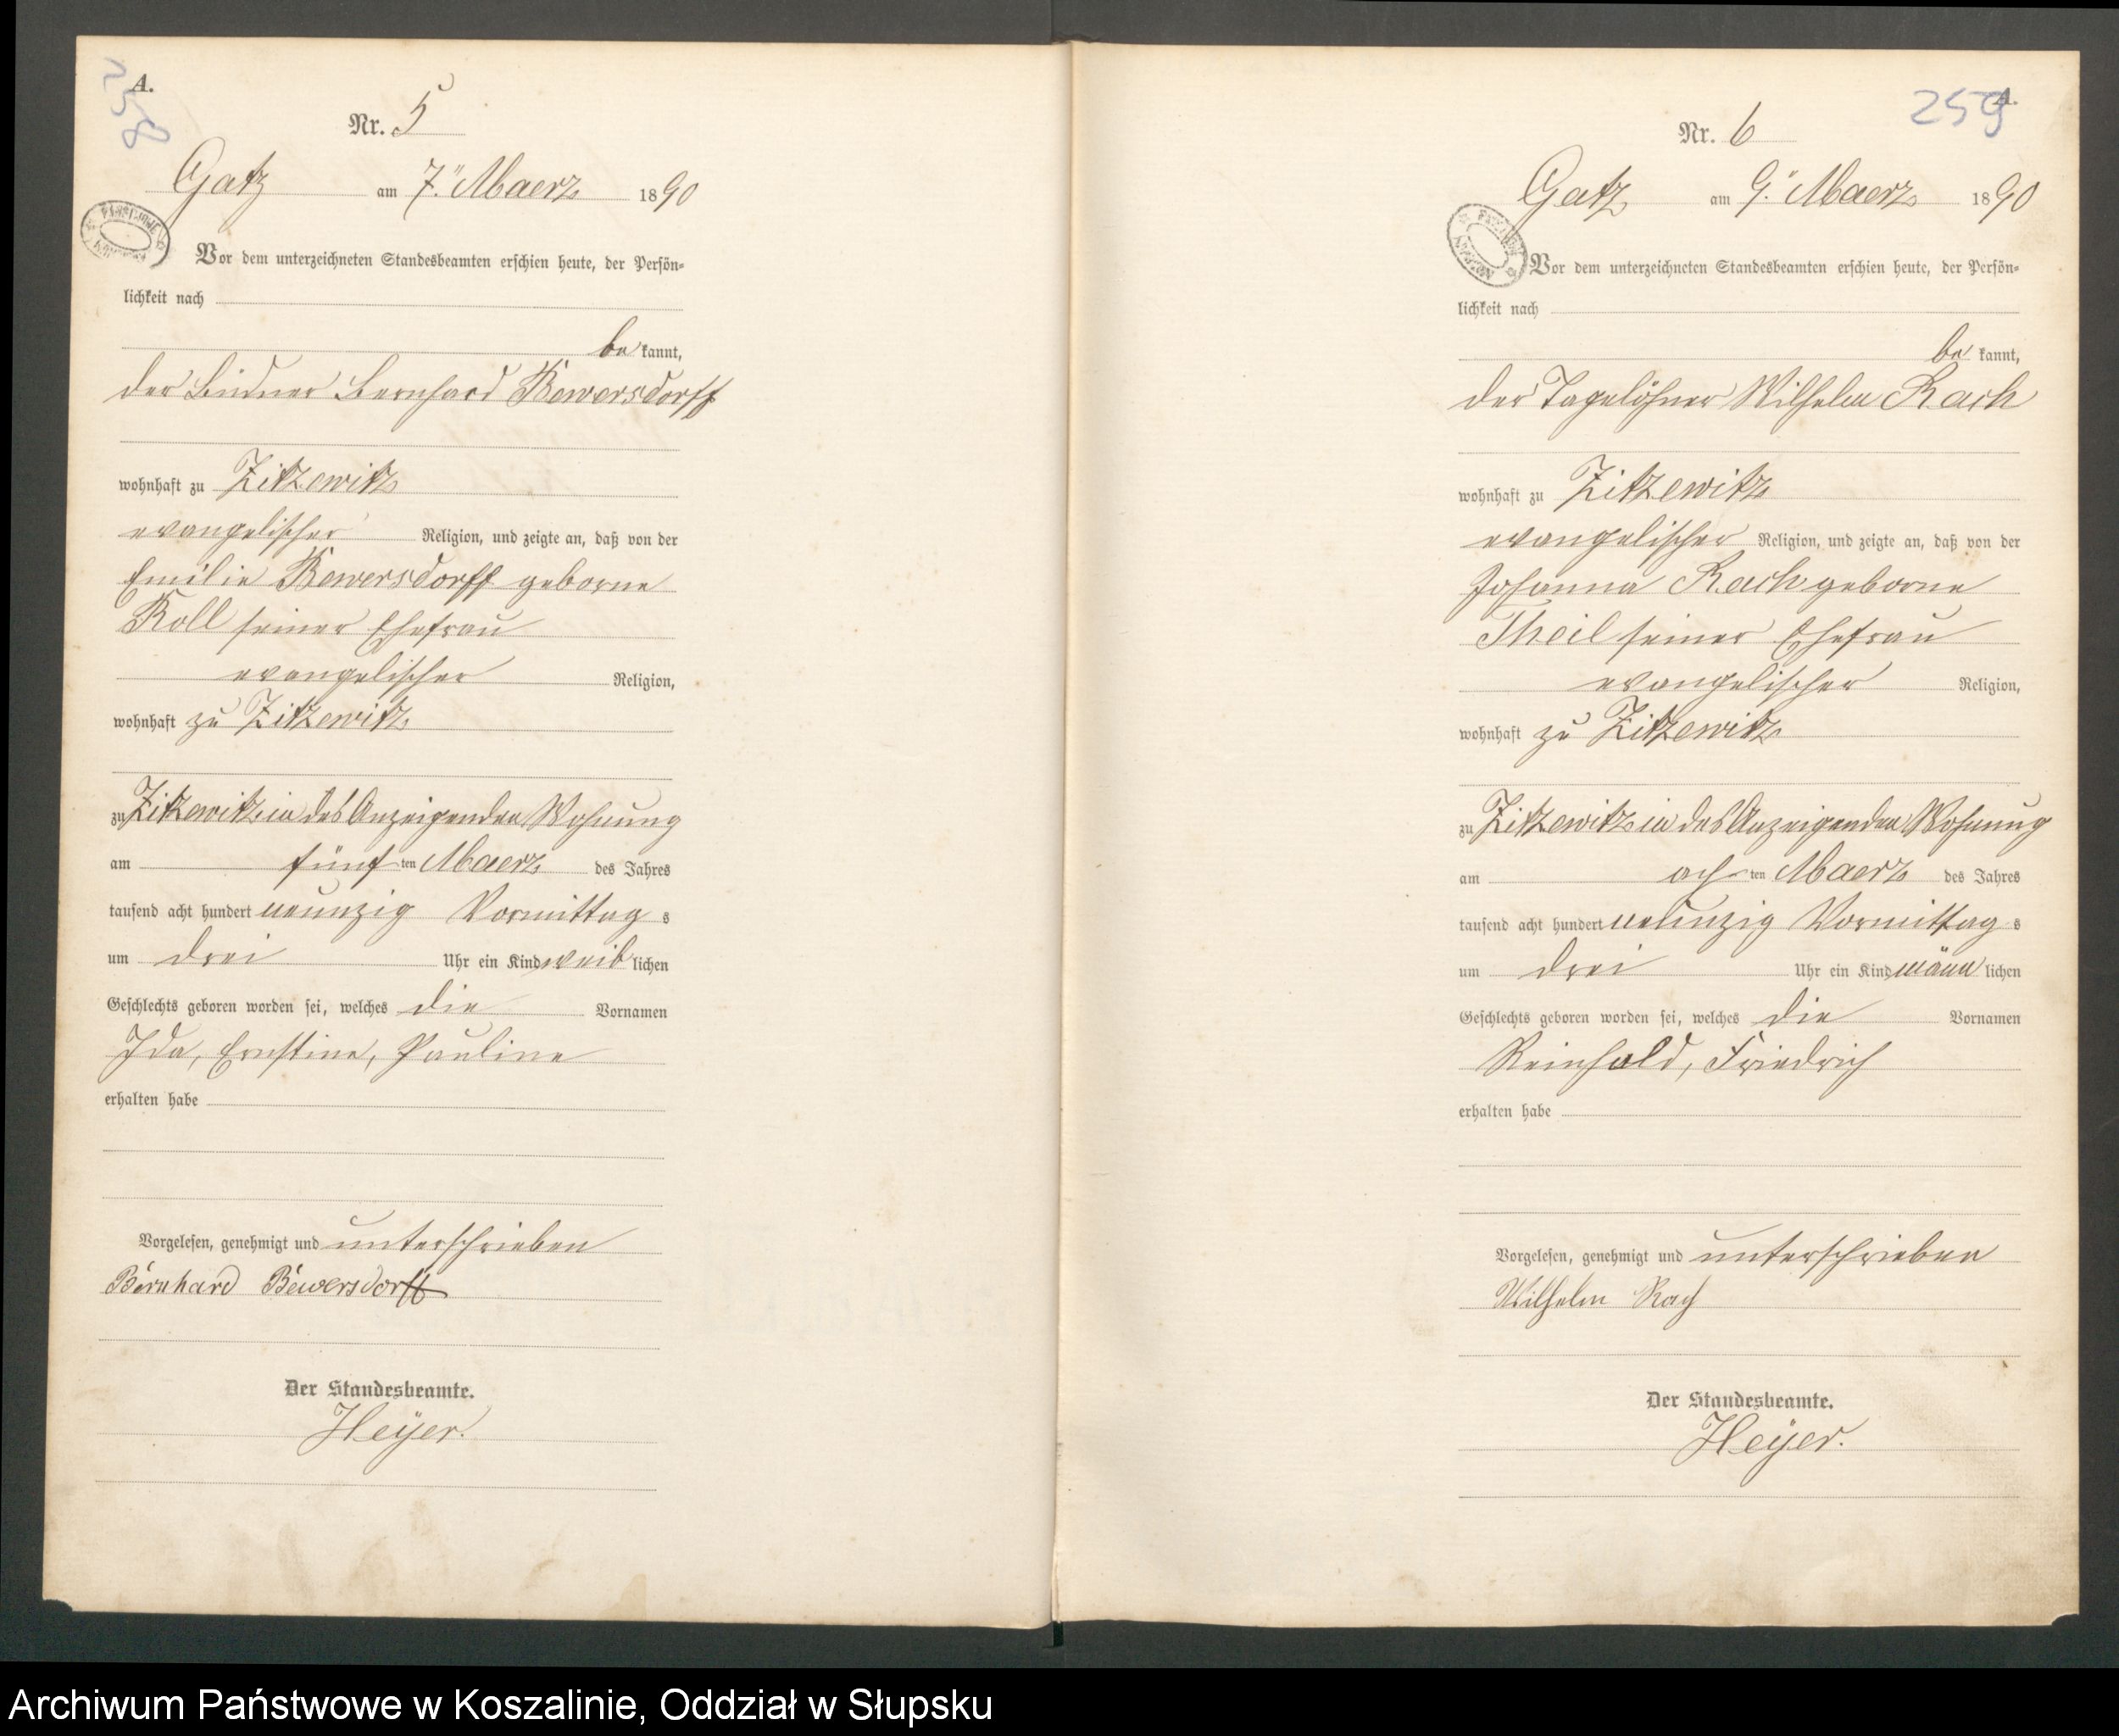 A.
258
Nr. 5
Gatz am 7. Maerz 1890
Vor dem unterzeichneten Standesbeamten erschien heute, der Persön-
lichkeit nach
be kannt,
der Büdner Bernhard Bewersdorff
wohnhaft zu Zitzewitz
evangelischer Religion, und zeigte an, daß von der
Emilie Bewersdorff geborne
Koll seiner Ehefrau
evangelischer Religion,
wohnhaft zu Zitzewitz
zu Zitzewitz in des Anzeigenden Wohnung
am fünf ten Maerz des Jahres
tausend acht hundert neunzig Vormittag s
um drei Uhr ein Kind weib lichen
Geschlechts geboren worden sei, welches die Vornamen
Ida, Ernstine, Pauline
erhalten habe
Vorgelesen, genehmigt und unterschrieben
Bernhard Bewersdorff
Der Standesbeamte.
Heyer.
A.
259
Nr. 6
Gatz am 9. Maerz 1890
Vor dem unterzeichneten Standesbeamten erschien heute, der Persön-
lichkeit nach
be kannt,
der Tagelöhner Wilhelm Rach
wohnhaft zu Zitzewitz
evangelischer Religion, und zeigte an, daß von der
Johanna Rach geborne
Theil seiner Ehefrau
evangelischer Religion,
wohnhaft zu Zitzewitz
zu Zitzewitz in des Anzeigenden Wohnung
am ach ten Maerz des Jahres
tausend acht hundert neunzig Vormittag s
um drei Uhr ein Kind männ lichen
Geschlechts geboren worden sei, welches die Vornamen
Reinhold, Friedrich
erhalten habe
Vorgelesen, genehmigt und unterschrieben
Wilhelm Rach
Der Standesbeamte.
Heyer.
Archiwum Państwowe w Koszalinie, Oddział w Słupsku